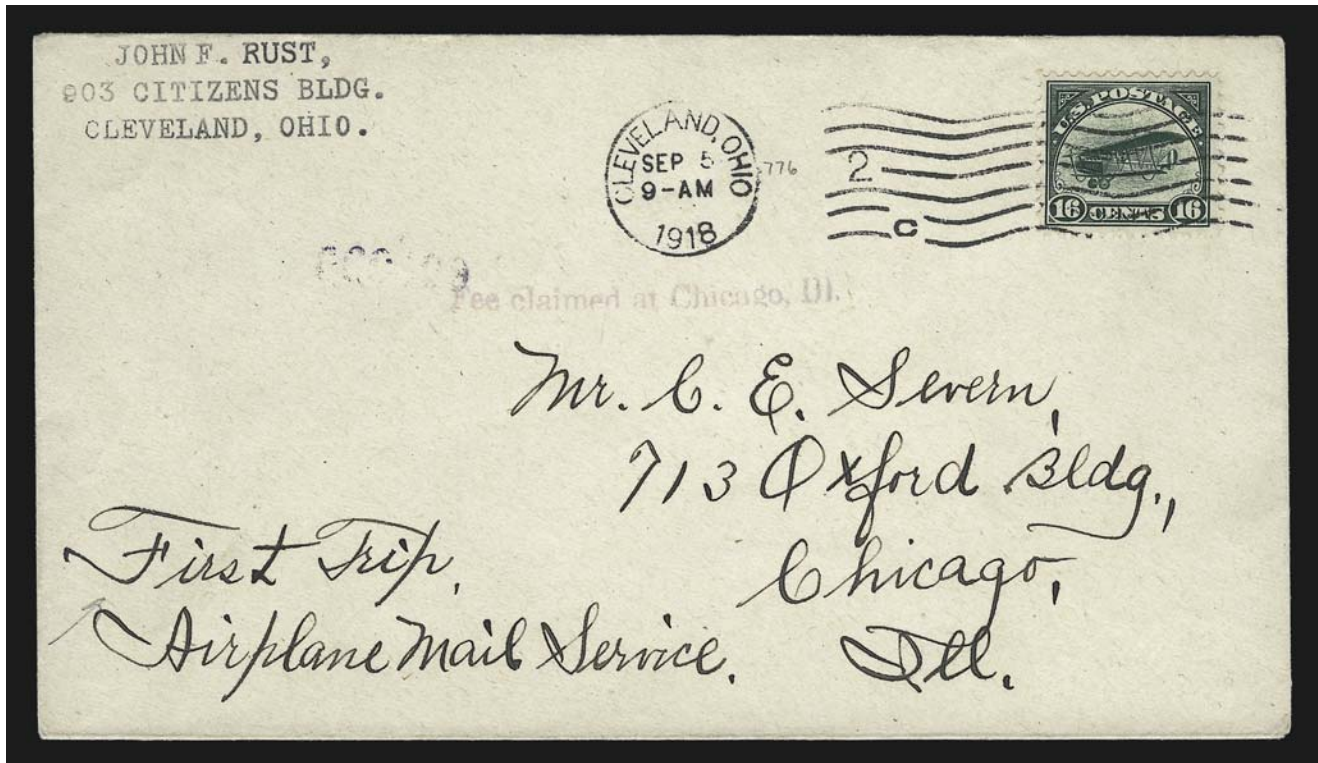 JOHN F. RUST,
903 CITIZENS BLDG.
CLEVELAND, OHIO.
CLEVELAND, OHIO
SEP 5
9-AM
1918
776
2
C
U.S. POSTAGE
16 CENTS 16
Fee claimed at Chicago, Ill.
Mr. C. E. Severn,
713 Oxford Bldg.,
Chicago,
Ill.
First Trip,
Airplane Mail Service.